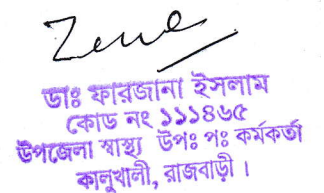 ডাঃ ফারজানা ইসলাম
কোড নং ১১১৪৬৫
উপজেলা স্বাস্থ্য উপঃ পঃ কর্মকর্তা
কালুখালী, রাজবাড়ী।